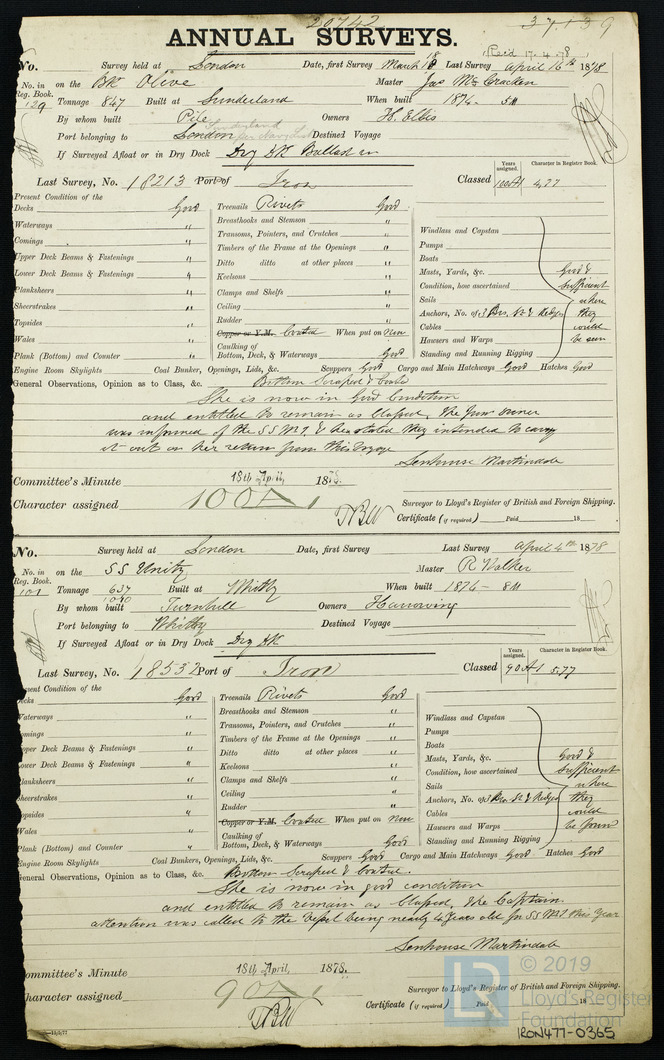 20742
37139
ANNUAL SURVEYS.
Rec'd 17.4.78
No. Survey held at London Date, first Survey March 18 Last Survey April 16th 1878
No. in Reg. Book. 129 on the Bk Olive Master Jas McCracken
Tonnage 847 Built at Sunderland When built 1874 - 5M
By whom built Pile Owners H. Ellis
Port belonging to London Destined Voyage
If Surveyed Afloat or in Dry Dock Dry Dk
Last Survey, No. 18213 Port of Iron Classed Years assigned. 100A1 Character in Register Book. 4,77
Present Condition of the
Decks Good Treenails Rivets Good
Waterways " Breasthooks and Stemson " Windlass and Capstan
Comings " Transoms, Pointers, and Crutches " Pumps
Upper Deck Beams & Fastenings " Timbers of the Frame at the Openings " Boats
Lower Deck Beams & Fastenings " Ditto ditto at other places " Masts, Yards, &c. Good &
Planksheers " Keelsons " Condition, how ascertained sufficient
Sheerstrakes " Clamps and Shelfs " Sails where
Topsides " Ceiling " Anchors, No. of 3 Brs. they
Wales " Rudder " Cables could
Plank (Bottom) and Counter " Copper or Y.M. Coated When put on New Hawsers and Warps be seen
Caulking of Bottom, Deck, & Waterways Good Standing and Running Rigging
Engine Room Skylights Coal Bunker, Openings, Lids, &c. Scuppers Good Cargo and Main Hatchways Good Hatches Good
General Observations, Opinion as to Class, &c. Bottom Scraped & Coated
She is now in Good Condition
and entitled to remain as Classed, the
was informed of the SS No 1, & has stated they intended to carry
it out on her return from this Voyage
Senhouse Martindale
Committee's Minute 18th April, 1878.
Surveyor to Lloyd's Register of British and Foreign Shipping.
Character assigned 100A1
TBW Certificate (if required) Paid 18
No. Survey held at London Date, first Survey Last Survey April 4th 1878
No. in Reg. Book. 101 on the SS Unity Master R Walker
Tonnage 637 1040 Built at Whitby When built 1874 - 8M
By whom built Turnbull Owners Harrowing
Port belonging to Whitby Destined Voyage
If Surveyed Afloat or in Dry Dock Dry Dk
Last Survey, No. 18532 Port of Iron Classed Years assigned. 90A1 Character in Register Book. 5.77
esent Condition of the
ecks Good Treenails Rivets Good
Waterways " Breasthooks and Stemson " Windlass and Capstan
omings " Transoms, Pointers, and Crutches " Pumps
pper Deck Beams & Fastenings " Timbers of the Frame at the Openings " Boats
ower Deck Beams & Fastenings " Ditto ditto at other places " Masts, Yards, &c. Good &
lanksheers " Keelsons " Condition, how ascertained Sufficient
heerstrakes " Clamps and Shelfs " Sails where
opsides " Ceiling " Anchors, No. of 3 Brs. they
Wales " Rudder " Cables could
Plank (Bottom) and Counter " Copper or Y.M. Coated When put on New Hawsers and Warps be found
Caulking of Bottom, Deck, & Waterways Good Standing and Running Rigging
ngine Room Skylights Coal Bunkers, Openings, Lids, &c. Scuppers Good Cargo and Main Hatchways Good Hatches Good
eneral Observations, Opinion as to Class, &c. Bottom Scraped & Coated.
She is now in good condition
and entitled to remain as Classed, the Captain
attention was called to the Vessel being nearly 4 Years old for SS No 1 this Year
Senhouse Martindale
ommittee's Minute 18th April, 1878.
Surveyor to Lloyd's Register of British and Foreign Shipping.
haracter assigned 90A1
TBW Certificate (if required) Paid 18
LR © 2019
Lloyd's Register
Foundation
IRON477-0365